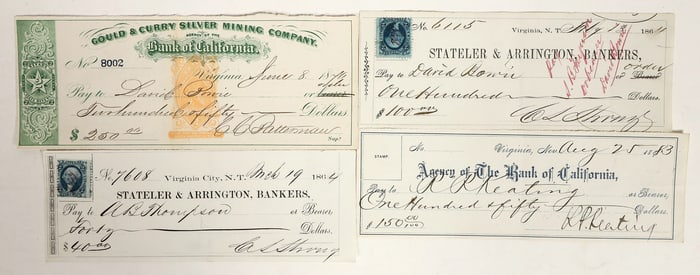 GOULD & CURRY SILVER MINING COMPANY.
AGENCY OF THE
Bank of California.
No. 8002
Virginia June 8 1874
Pay to David Bowie or order Bearer
Two hundred & fifty Dollars.
$ 250.00
Supt
No. 6115 Virginia, N. T. 1864
STATELER & ARRINGTON, BANKERS,
Pay to David Bowie or order Bearer
One Hundred Dollars.
$ 100.00 C L Strong
No. 7608 Virginia City, N. T. 19 1864
STATELER & ARRINGTON, BANKERS,
Pay to A B Thompson or Bearer
Forty Dollars.
$ 40.00 C L Strong
STAMP
No. Virginia, Nev. Aug 25 1883
Agency of The Bank of California,
Pay to R R Keating or Bearer,
One Hundred & fifty Dollars
$ 150.00 R R Keating